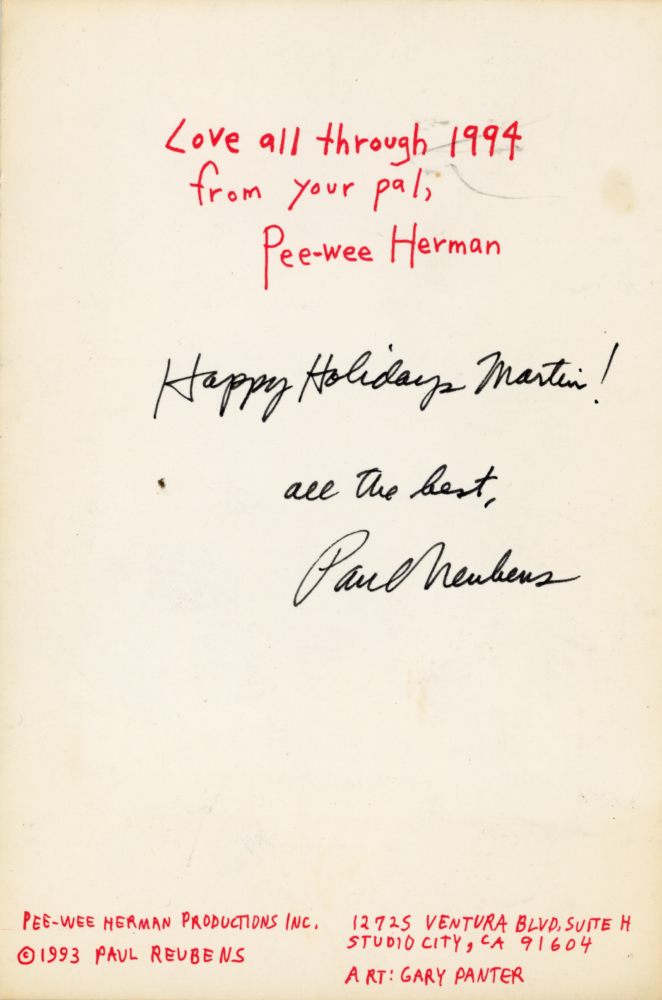 Love all through 1994
from your pal,
Pee-wee Herman
Happy Holidays Martin!
all the best,
Paul Reubens
PEE-WEE HERMAN PRODUCTIONS INC.
©1993 PAUL REUBENS
12725 VENTURA BLVD, SUITE H
STUDIO CITY, CA 91604
ART: GARY PANTER